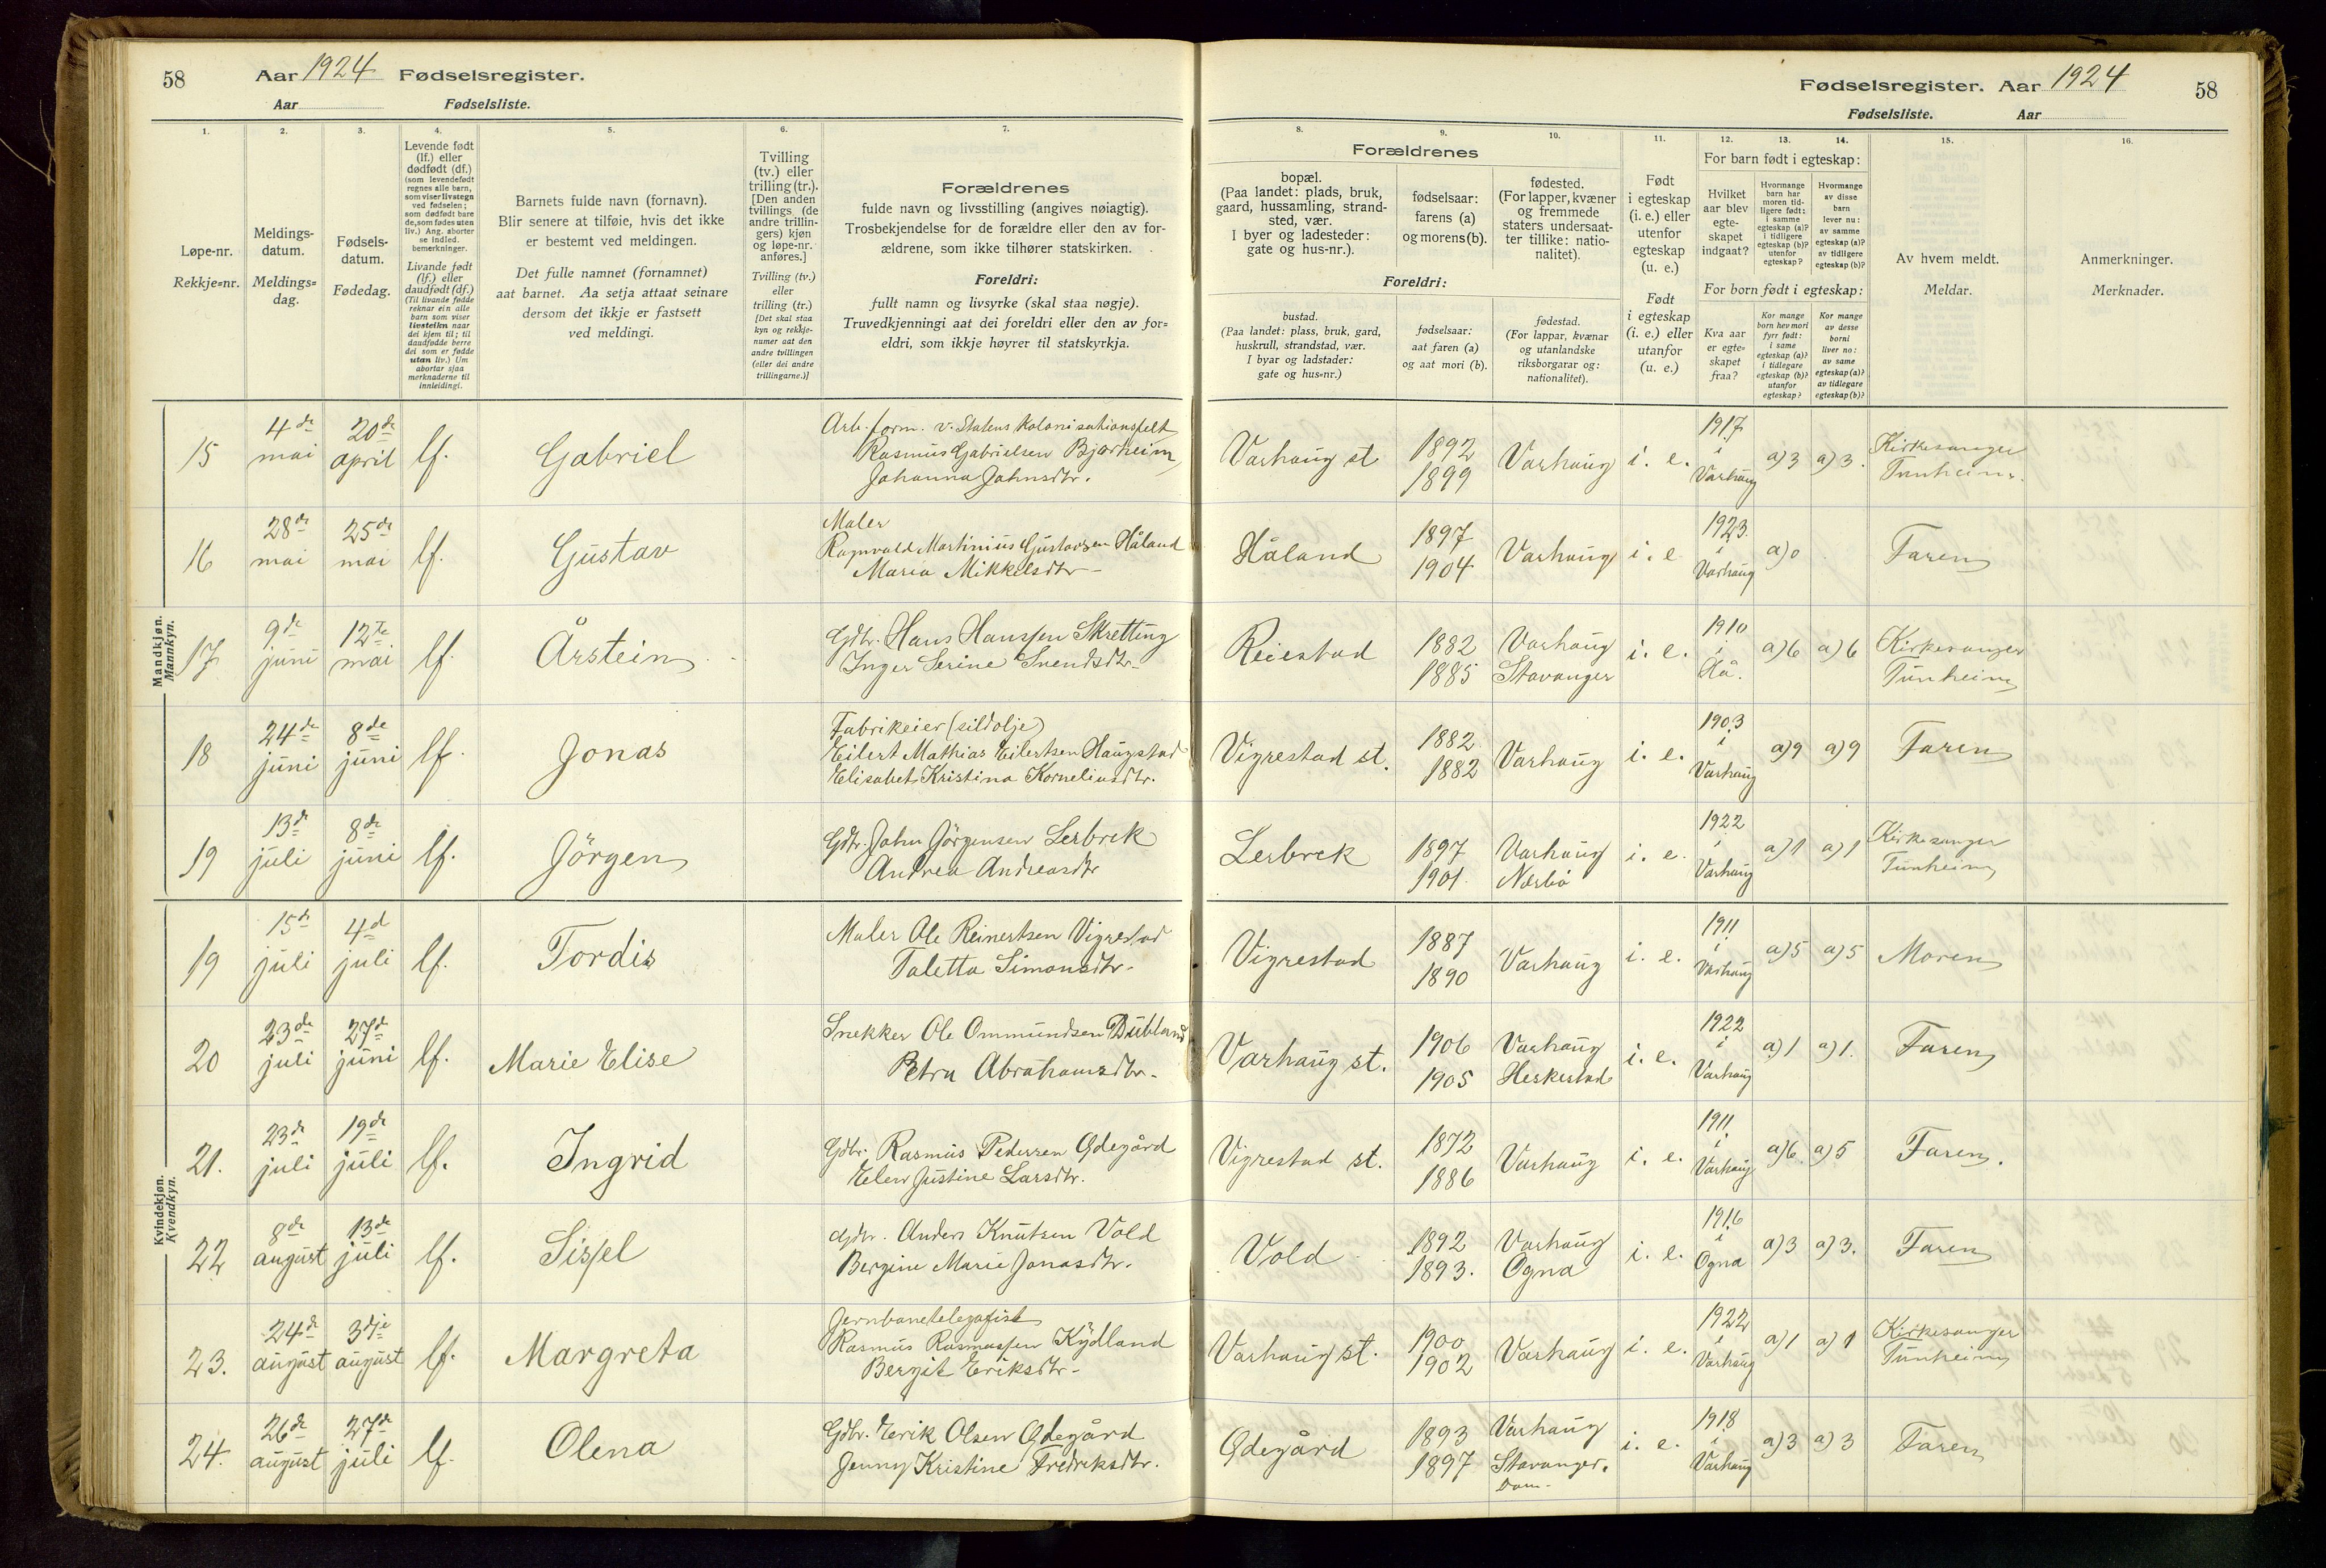 58 Aar 1924 Fødselsregister.
Aar Fødselsliste.
Fødselsregister. Aar 1924 58
Fødselsliste. Aar
1. 2. 3. 4. 5. 6. 7.
Løpe-nr.
Rekkje=nr.
Meldings-
datum.
Meldings=
dag.
Fødsels-
datum.
Fødedag.
Levende født
(lf.) eller
dødfødt (df.)
(som levendefødt
regnes alle barn,
som viser livstegn
ved fødselen;
som dødfødt bare
de, som fødes uten
liv.) Ang. aborter
se indled.
bemerkninger.
Livande født
(lf.) eller
daudfødt (df.)
(Til livande fødde
reknar ein alle
barn som viser
livsteikn naar
dei kjem til; til
daudfødde berre
dei som er fødde
utan liv.) Um
abortar sjaa
merknaderne til
innleidingi.
Barnets fulde navn (fornavn).
Blir senere at tilføie, hvis det ikke
er bestemt ved meldingen.
Det fulle namnet (fornamnet)
aat barnet. Aa setja attaat seinare
dersom det ikkje er fastsett
ved meldingi.
Tvilling
(tv.) eller
trilling (tr.).
[Den anden
tvillings (de
andre trillin-
gers) kjøn
og løpe-nr.
anføres.]
Tvilling (tv.)
eller
trilling (tr.)
[Det skal staa
kyn og rekkje-
numer aat den
andre tvillingen
(eller dei andre
trillingarne.)]
Forældrenes
fulde navn og livsstilling (angives nøiagtig).
Trosbekjendelse for de forældre eller den av for-
ældrene, som ikke tilhører statskirken.
Foreldri:
fullt namn og livsyrke (skal staa nøgje).
Truvedkjenningi aat dei foreldri eller den av for=
eldri, som ikkje høyrer til statskyrkja.
8. 9. 10. 11. 12. 13. 14. 15. 16.
Forældrenes
bopæl.
(Paa landet: plads, bruk,
gaard, hussamling, strand-
sted, vær.
I byer og ladesteder:
gate og hus-nr.).
fødselsaar:
farens (a)
og morens (b).
fødested.
(For lapper, kvæner
og fremmede
staters undersaat-
ter tillike: natio-
nalitet).
Foreldri:
bustad.
(Paa landet: plass, bruk, gard,
huskrull, strandstad, vær.
I byar og ladstader:
gate og hus=nr.)
fødselsaar:
aat faren (a)
og aat mori (b).
fødestad.
(For lappar, kvænar
og utanlandske
riksborgarar og:
nationalitet).
Født
i egteskap
(i. e.) eller
utenfor
egteskap
(u. e.)
Født
i egteskap
(i. e.) eller
utanfor
(u. e.)
For barn født i egteskap:
Hvilket
aar blev
egte-
skapet
indgaat?
Hvormange
barn har
moren tid-
ligere født:
i samme
egteskap (a)?
i tidligere
egteskap (b)?
utenfor
egteskap?
Hvormange
av disse
barn
lever nu:
av samme
egteskap (a)?
av tidligere
egteskap (b)?
For born født i egteskap:
Kva aar
er egte=
skapet
fraa?
Kor mange
born hev mori
fyrr født:
i same
egteskap (a)?
i tidlegare
egteskap (b)?
utanfor
egteskap?
Kor mange
av desse
borni
liver no:
av same
egteskap (a)?
av tidlegare
egteskap (b)?
Av hvem meldt.
Meldar.
Anmerkninger.
Merknader.
Mandkjøn.
Mannkyn.
15 4de mai 20de april lf. Gabriel
Arb. form. v. Statens Kolonisationsfelt
Rasmus Gabrielsen Bjorheim
Johanna Johnsdtr.
Varhaug st 1892 1899 Varhaug i. e. 1917 i Varhaug a)3 a)3. Kirkesanger Tunheim.
16 28de mai 25de mai lf. Gustav
Maler
Ragnvald Martinius Gustavsen Håland
Maria Mikkelsdtr
Håland 1897 1904 Varhaug i. e 1923. i Varhaug a)0 Faren
17 9de juni 12te mai lf. Årstein
Gdbr. Hans Hanssen Skretting
Inger Serine Svendsdtr.
Reiestad 1882 1885 Varhaug Stavanger i. e. 1910 i Hå. a)6 a)6 Kirkesanger Tunheim
18 24de juni 8de juni lf. Jonas
Fabrikeier (sildolje)
Eilert Mathias Eilertsen Haugstad
Elisabet Kristina Korneliusdtr.
Vigrestad st. 1882 1882 Varhaug i. e. 1903 i Varhaug a)9 a)9 Faren
19 13de juli 8de juni lf. Jörgen
Gdbr. John Jörgensen Lerbrek
Andrea Andreasdtr
Lerbrek 1897 1901 Varhaug Nærbö i. e. 1922 i Varhaug a)1 a)1 Kirkesanger Tunheim
Kvindekjøn.
Kvendkyn.
19 15de juli 4de juli lf. Tordis
Maler Ole Reinertsen Vigrestad
Taletta Simonsdtr.
Vigrestad 1887 1890 Varhaug i. e. 1911 i Varhaug a)5 a)5 Moren
20 23de juli 27de juni lf. Marie Elise
Snekker Ole Ommundsen Dubland
Petra Abrahamsdtr.
Varhaug st. 1906 1905 Varhaug Heskestad i. e. 1922 i Varhaug a)1 a)1. Faren
21. 23de juli 19de juli lf. Ingrid
Gdbr. Rasmus Pedersen Ödegård
Elen Justine Larsdtr.
Vigrestad st. 1872 1886 Varhaug i. e. 1911 i Varhaug a)6 a)5 Faren.
22 8de august 13de juli lf. Sissel
Gdbr. Anders Knutsen Vold
Bergine Marie Jonasdtr.
Vold 1892 1893. Varhaug Ogna i. e. 1916 i Ogna a)3 a)3. Faren
23. 24de august 3dje august lf. Margreta
Jernbanetelegafist
Rasmus Rasmussen Kydland
Bergit Eriksdtr.
Varhaug st. 1900 1902 Varhaug i. e. 1922 i Varhaug a)1 a)1 Kirkesanger Tunheim
24. 26de august 27de juli lf. Olena
Gdbr. Erik Olsen Ödegård
Jenny Kristine Fredriksdtr.
Ödegård 1893 1897 Varhaug Stavanger. Dom. i. e. 1918 i Varhaug a)3 a)3 Faren